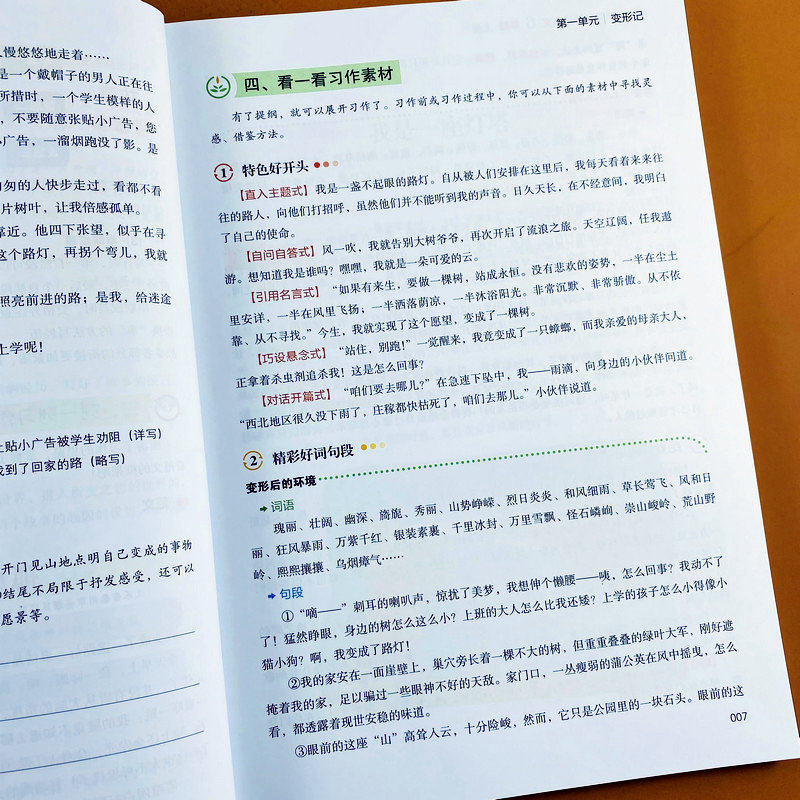 人慢悠悠地走着……
是一个戴帽子的男人正在往
所措时，一个学生模样的人
，不要随意张贴小广告，您
小广告，一溜烟跑没了影。是
匆的人快步走过，看都不看
片树叶，让我倍感孤单。
靠近。他四下张望，似乎在寻
这个路灯，再拐个弯儿，我就
照亮前进的路；是我，给迷途
上学呢！
上贴小广告被学生劝阻（详写）
找到了回家的路（略写）
开门见山地点明自己变成的事物
结尾不局限于抒发感受，还可以
愿景等。
第一单元 变形记
四、看一看习作素材
有了提纲，就可以展开习作了。习作前或习作过程中，你可以从下面的素材中寻找灵
感、借鉴方法。
1 特色好开头
【直入主题式】我是一盏不起眼的路灯。自从被人们安排在这里后，我每天看着来来往
往的路人，向他们打招呼，虽然他们并不能听到我的声音。日久天长，在不经意间，我明白
了自己的使命。
【自问自答式】风一吹，我就告别大树爷爷，再次开启了流浪之旅。天空辽阔，任我遨
游。想知道我是谁吗？嘿嘿，我就是一朵可爱的云。
【引用名言式】“如果有来生，要做一棵树，站成永恒。没有悲欢的姿势，一半在尘土
里安详，一半在风里飞扬；一半洒落荫凉，一半沐浴阳光。非常沉默、非常骄傲。从不依
靠、从不寻找。”今生，我就实现了这个愿望，变成了一棵树。
【巧设悬念式】“站住，别跑！”一觉醒来，我竟变成了一只蟑螂，而我亲爱的母亲大人，
正拿着杀虫剂追杀我！这是怎么回事？
【对话开篇式】“咱们要去哪儿？”在急速下坠中，我——雨滴，向身边的小伙伴问道。
“西北地区很久没下雨了，庄稼都快枯死了，咱们去那儿。”小伙伴说道。
2 精彩好词句段
变形后的环境
词语
瑰丽、壮阔、幽深、旖旎、秀丽、山势峥嵘、烈日炎炎、和风细雨、草长莺飞、风和日
丽、狂风暴雨、万紫千红、银装素裹、千里冰封、万里雪飘、怪石嶙峋、崇山峻岭、荒山野
岭、熙熙攘攘、乌烟瘴气……
句段
①“嘀——”刺耳的喇叭声，惊扰了美梦，我想伸个懒腰——咦，怎么回事？我动不了
了！猛然睁眼，身边的树怎么这么小？上班的大人怎么比我还矮？上学的孩子怎么小得像小
猫小狗？啊，我变成了路灯！
②我的家安在一面崖壁上，巢穴旁长着一棵不大的树，但重重叠叠的绿叶大军，刚好遮
掩着我的家，足以骗过一些眼神不好的天敌。家门口，一丛瘦弱的蒲公英在风中摇曳，怎么
看，都透露着现世安稳的味道。
③眼前的这座“山”高耸入云，十分险峻，然而，它只是公园里的一块石头。眼前的这
007